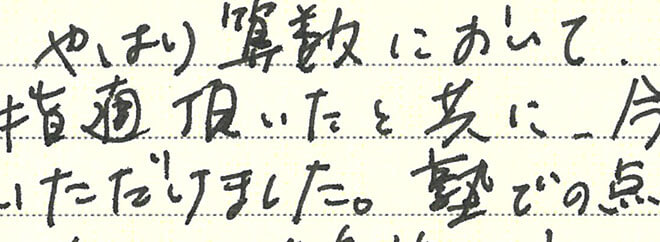 やはり算数において、
指適頂いたと共に、今
いただけました。塾での点